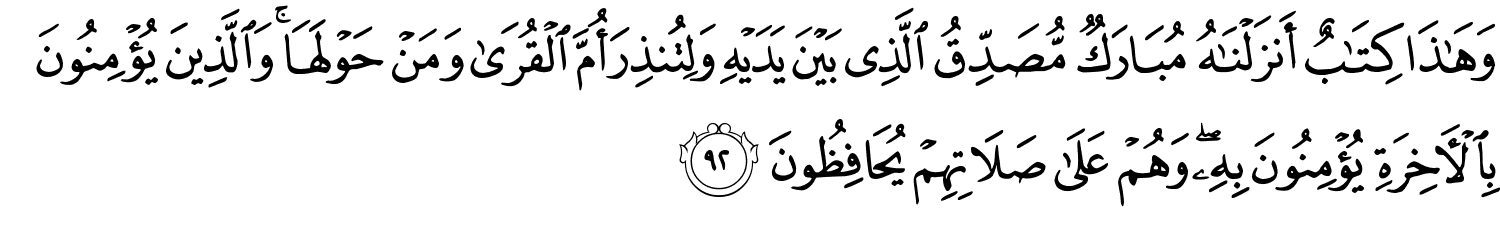 وَهَٰذَا كِتَٰبٌ أَنزَلْنَٰهُ مُبَارَكٌ مُّصَدِّقُ ٱلَّذِى بَيْنَ يَدَيْهِ وَلِتُنذِرَ أُمَّ ٱلْقُرَىٰ وَمَنْ حَوْلَهَا ۚ وَٱلَّذِينَ يُؤْمِنُونَ
بِٱلْأَخِرَةِ يُؤْمِنُونَ بِهِۦ ۖ وَهُمْ عَلَىٰ صَلَاتِهِمْ يُحَافِظُونَ ٩٢